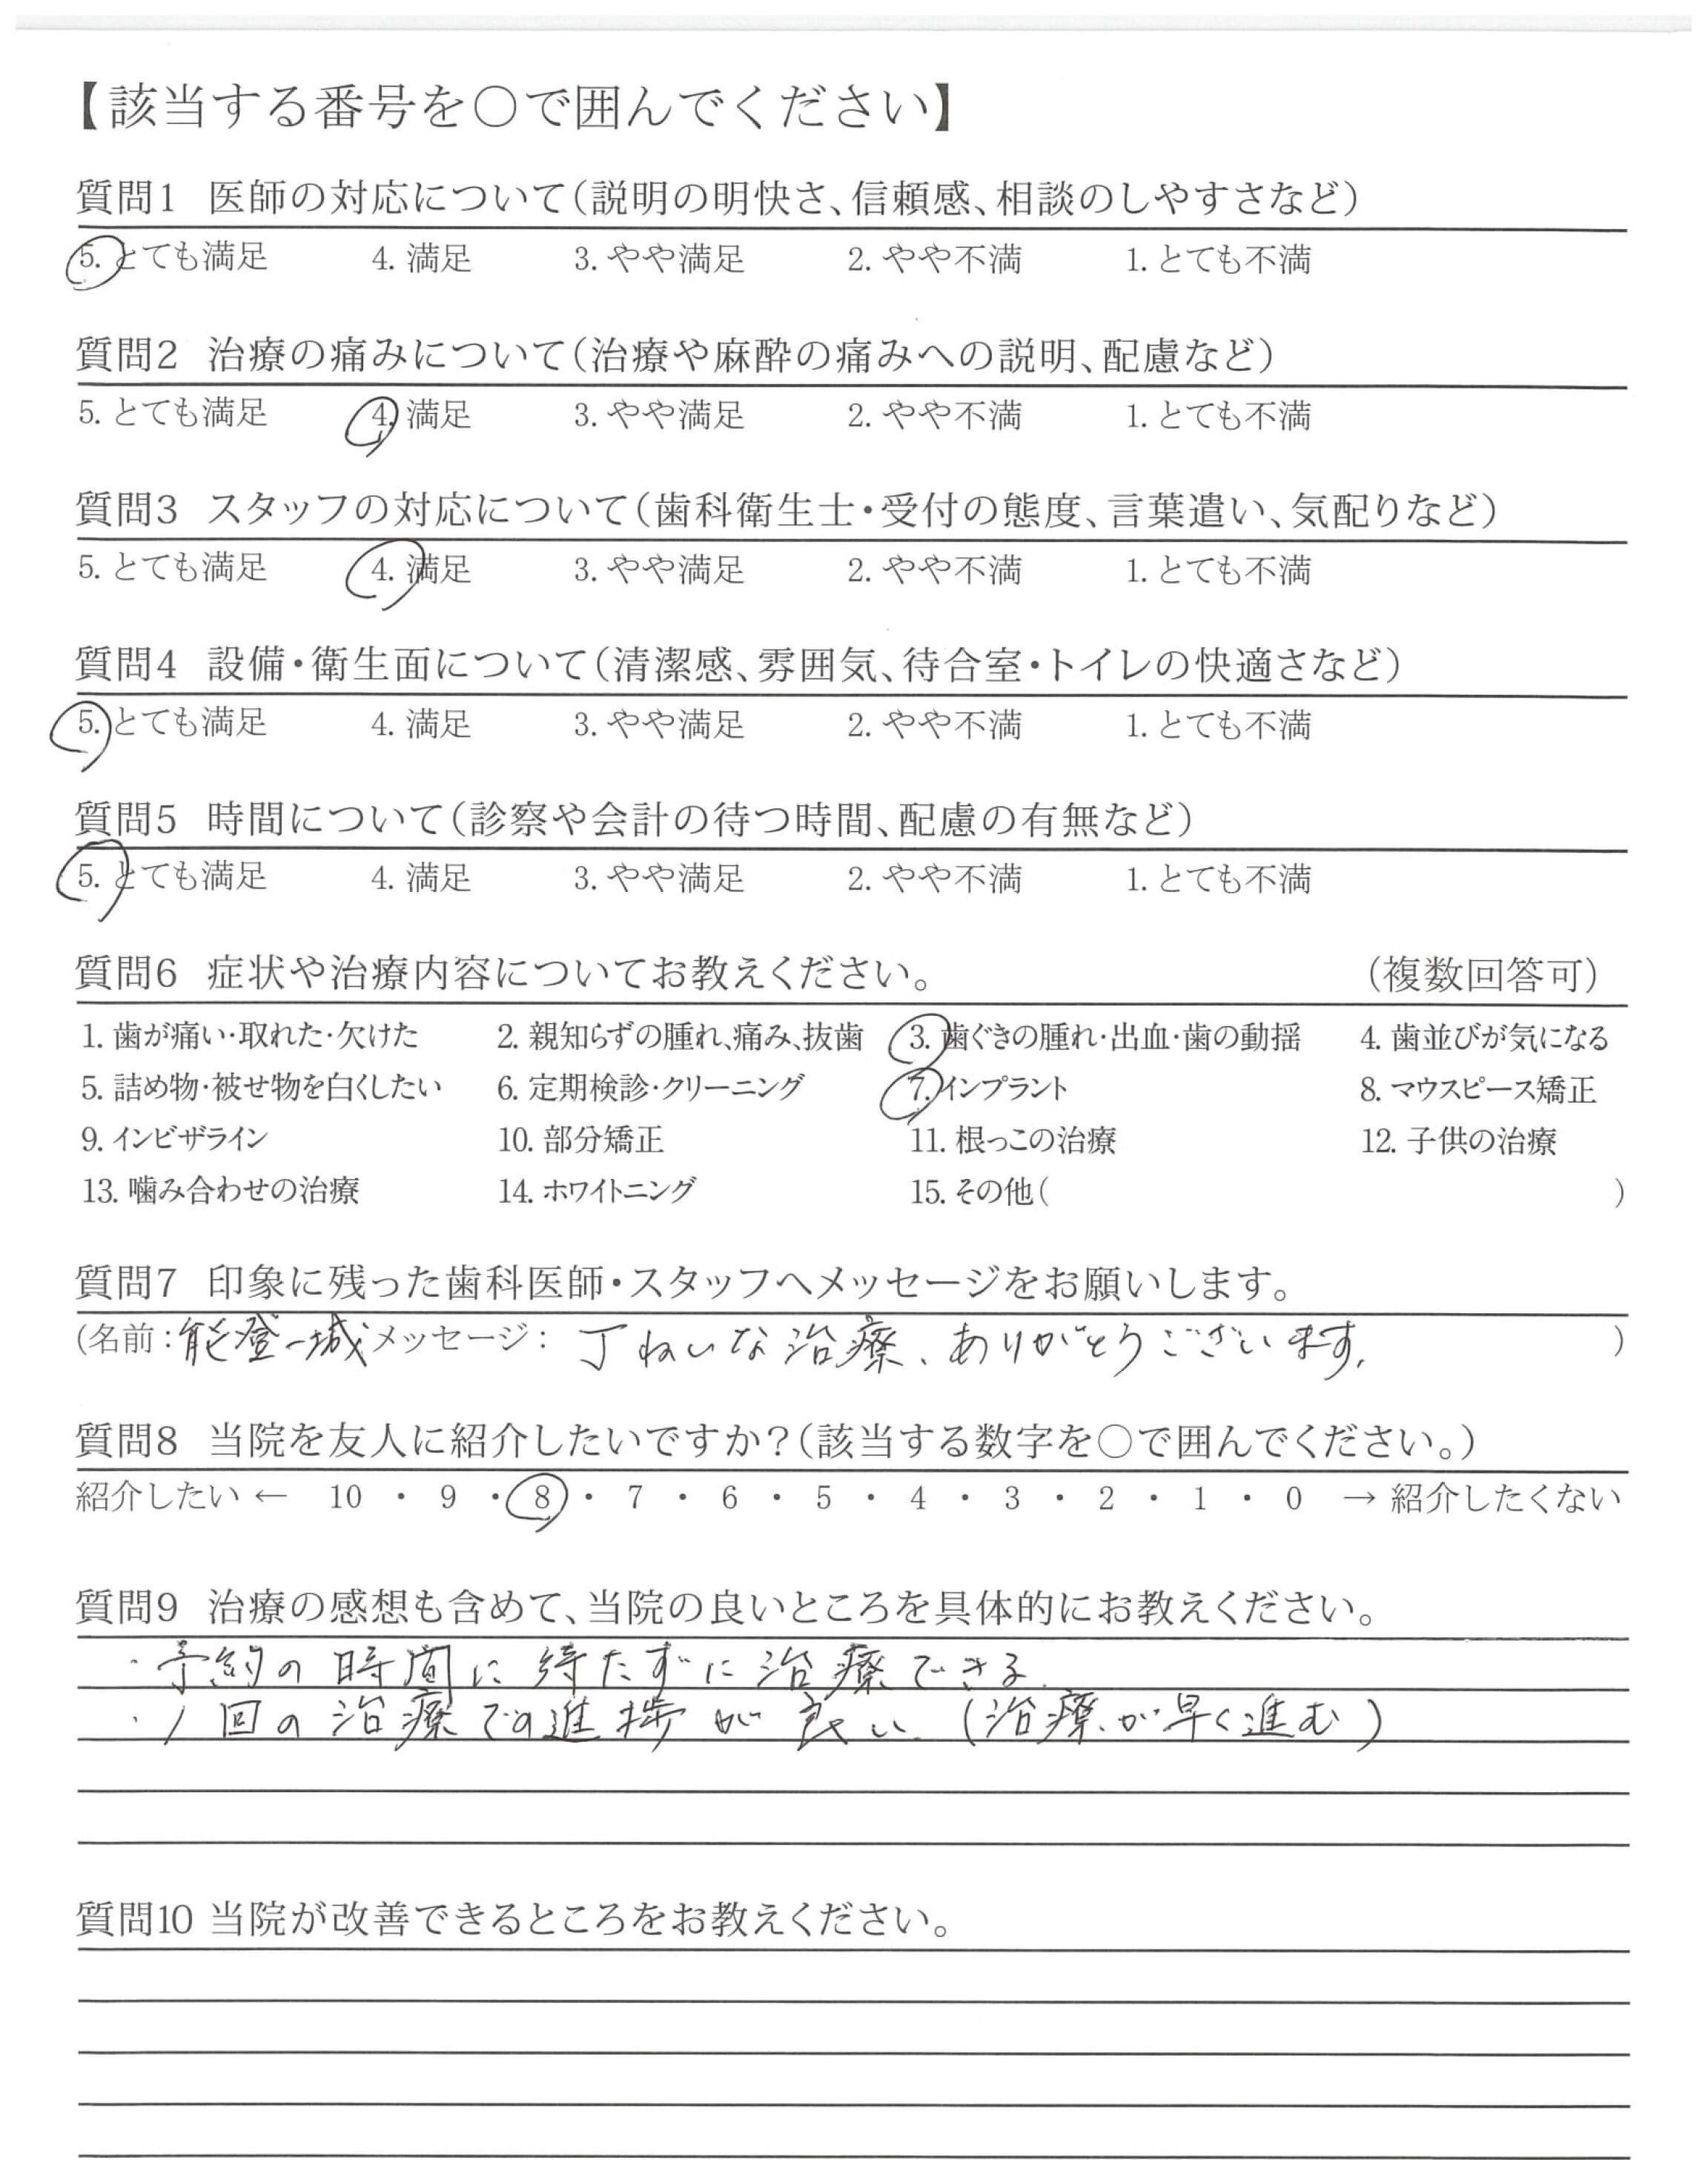 【該当する番号を○で囲んでください】
質問1 医師の対応について(説明の明快さ、信頼感、相談のしやすさなど)
5. とても満足 4. 満足 3. やや満足 2. やや不満 1. とても不満
質問2 治療の痛みについて(治療や麻酔の痛みへの説明、配慮など)
5. とても満足 4. 満足 3. やや満足 2. やや不満 1. とても不満
質問3 スタッフの対応について(歯科衛生士・受付の態度、言葉遣い、気配りなど)
5. とても満足 4. 満足 3. やや満足 2. やや不満 1. とても不満
質問4 設備・衛生面について(清潔感、雰囲気、待合室・トイレの快適さなど)
5. とても満足 4. 満足 3. やや満足 2. やや不満 1. とても不満
質問5 時間について(診察や会計の待つ時間、配慮の有無など)
5. とても満足 4. 満足 3. やや満足 2. やや不満 1. とても不満
質問6 症状や治療内容についてお教えください。 (複数回答可)
1. 歯が痛い・取れた・欠けた 2. 親知らずの腫れ、痛み、抜歯 3. 歯ぐきの腫れ・出血・歯の動揺 4. 歯並びが気になる
5. 詰め物・被せ物を白くしたい 6. 定期検診・クリーニング 7. インプラント 8. マウスピース矯正
9. インビザライン 10. 部分矯正 11. 根っこの治療 12. 子供の治療
13. 噛み合わせの治療 14. ホワイトニング 15. その他( )
質問7 印象に残った歯科医師・スタッフへメッセージをお願いします。
(名前:能登一城 メッセージ: 丁ねいな治療、ありがとうございます。 )
質問8 当院を友人に紹介したいですか?(該当する数字を○で囲んでください。)
紹介したい ← 10 ・ 9 ・ 8 ・ 7 ・ 6 ・ 5 ・ 4 ・ 3 ・ 2 ・ 1 ・ 0 → 紹介したくない
質問9 治療の感想も含めて、当院の良いところを具体的にお教えください。
・予約の時間に待たずに治療できる
・1回の治療での進捗が良い (治療が早く進む)
質問10 当院が改善できるところをお教えください。